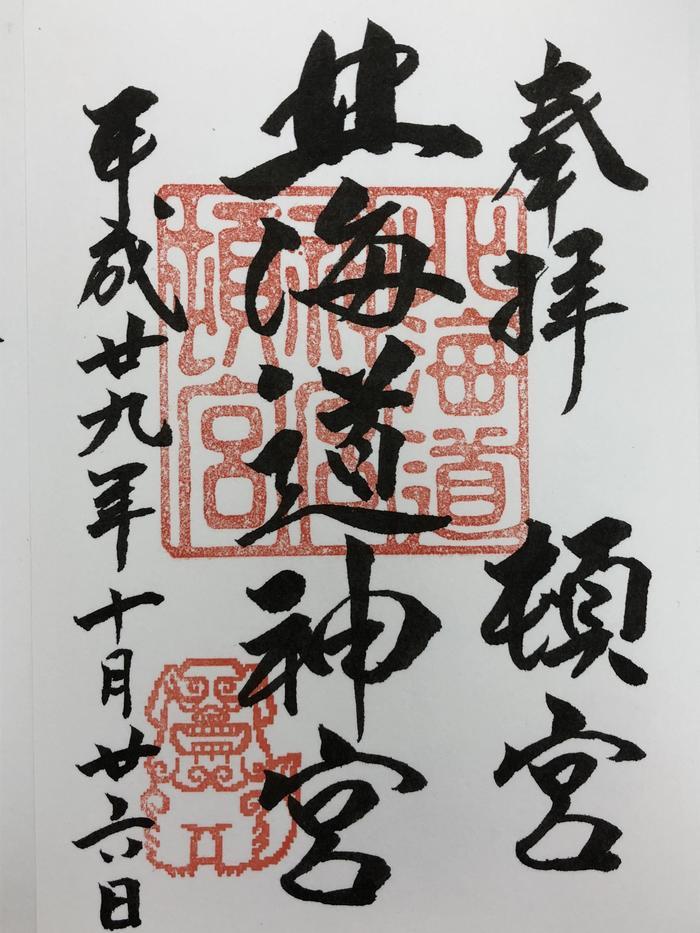 奉拝 頓宮
北海道神宮
平成廿九年十月廿六日
北海道
神宮
頓宮